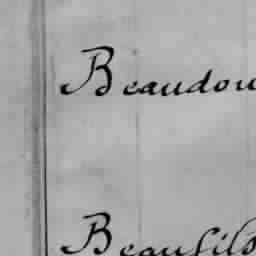 Beaudou
Beaufils